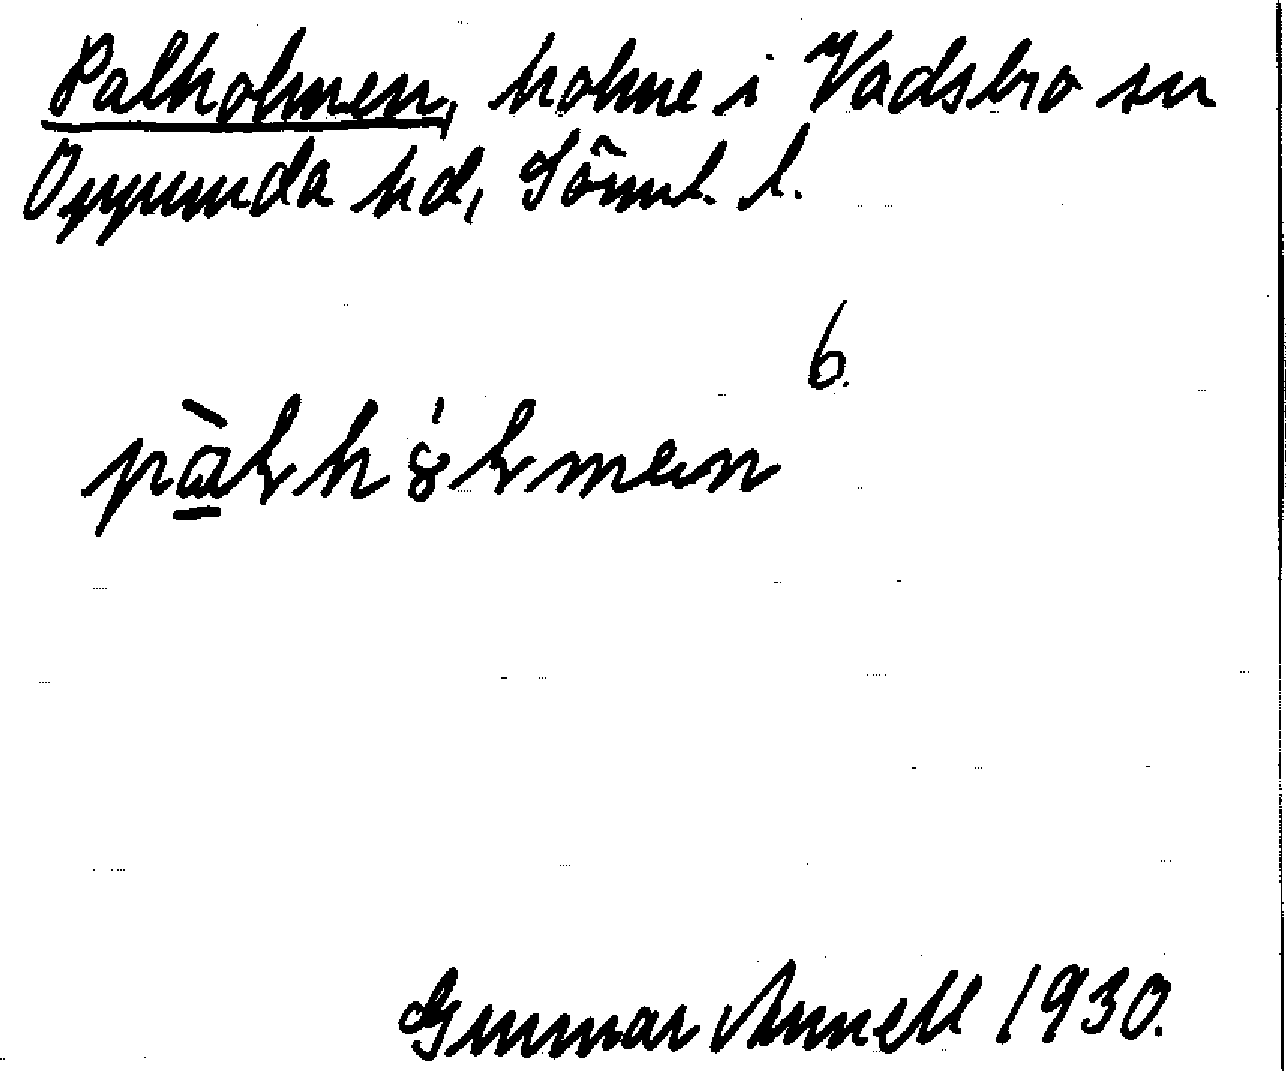 Palholmen, holme i Vadsbro sn
Oppunda hd, Söml. l.
6.
Gunnar Annell 1930.